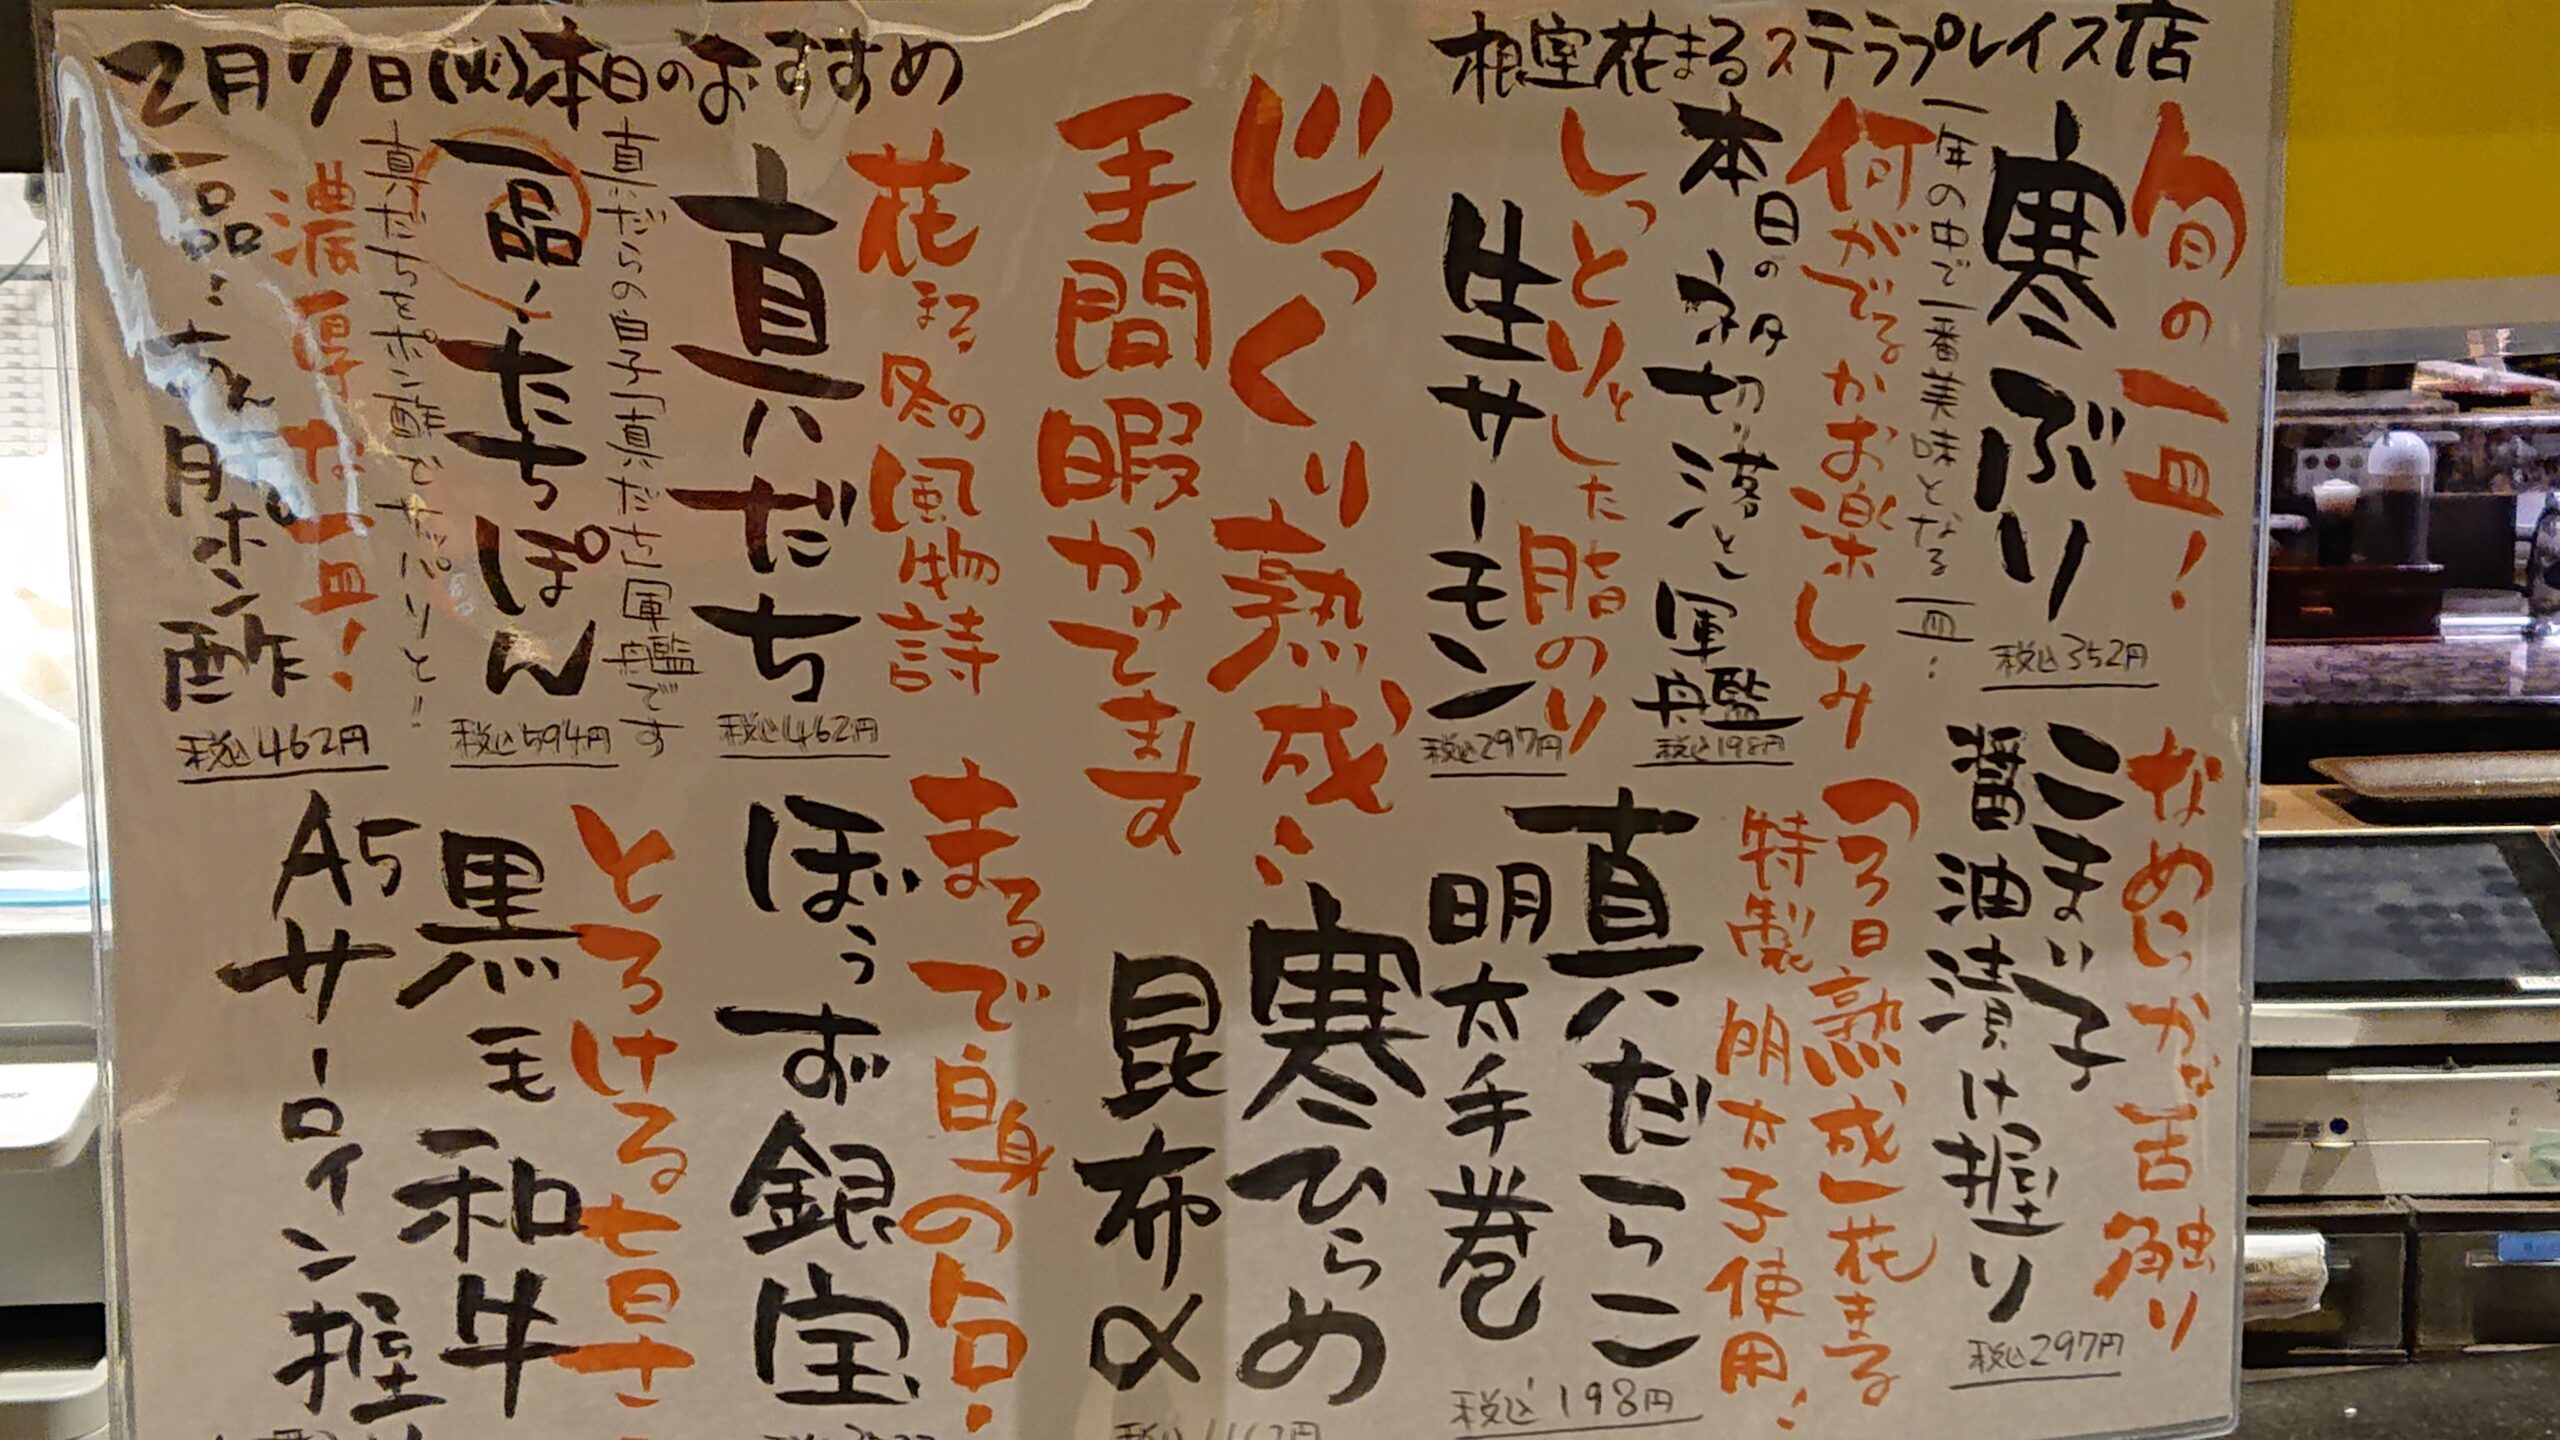 根室花まるステラプレイス店
2月7日(火)本日のおすすめ
旬の一皿!
寒ぶり
一年の中で一番美味となる一皿!
税込352円
なめらかな舌触り
こまい子
醤油漬け握り
税込297円
何がでるかお楽しみ
本日のネタ切り落とし軍艦
税込198円
しっとりとした脂のり
生サーモン
税込297円
熟成!花まる
特製明太子使用!
真だらこ
明太手巻
税込198円
じっくり熟成!
手間暇かけてます
寒ひらめ
昆布〆
花まる冬の風物詩
真だち
真だらの白子「真だち」軍艦です
税込462円
まるで白身のトロ!
ぼうず銀宝
一品!たちぽん
真だちをポン酢でサッパリと!!
税込594円
とろける旨さ
黒毛和牛
A5サーロイン握り
濃厚な一皿!
一品!
肝ポン酢
税込462円